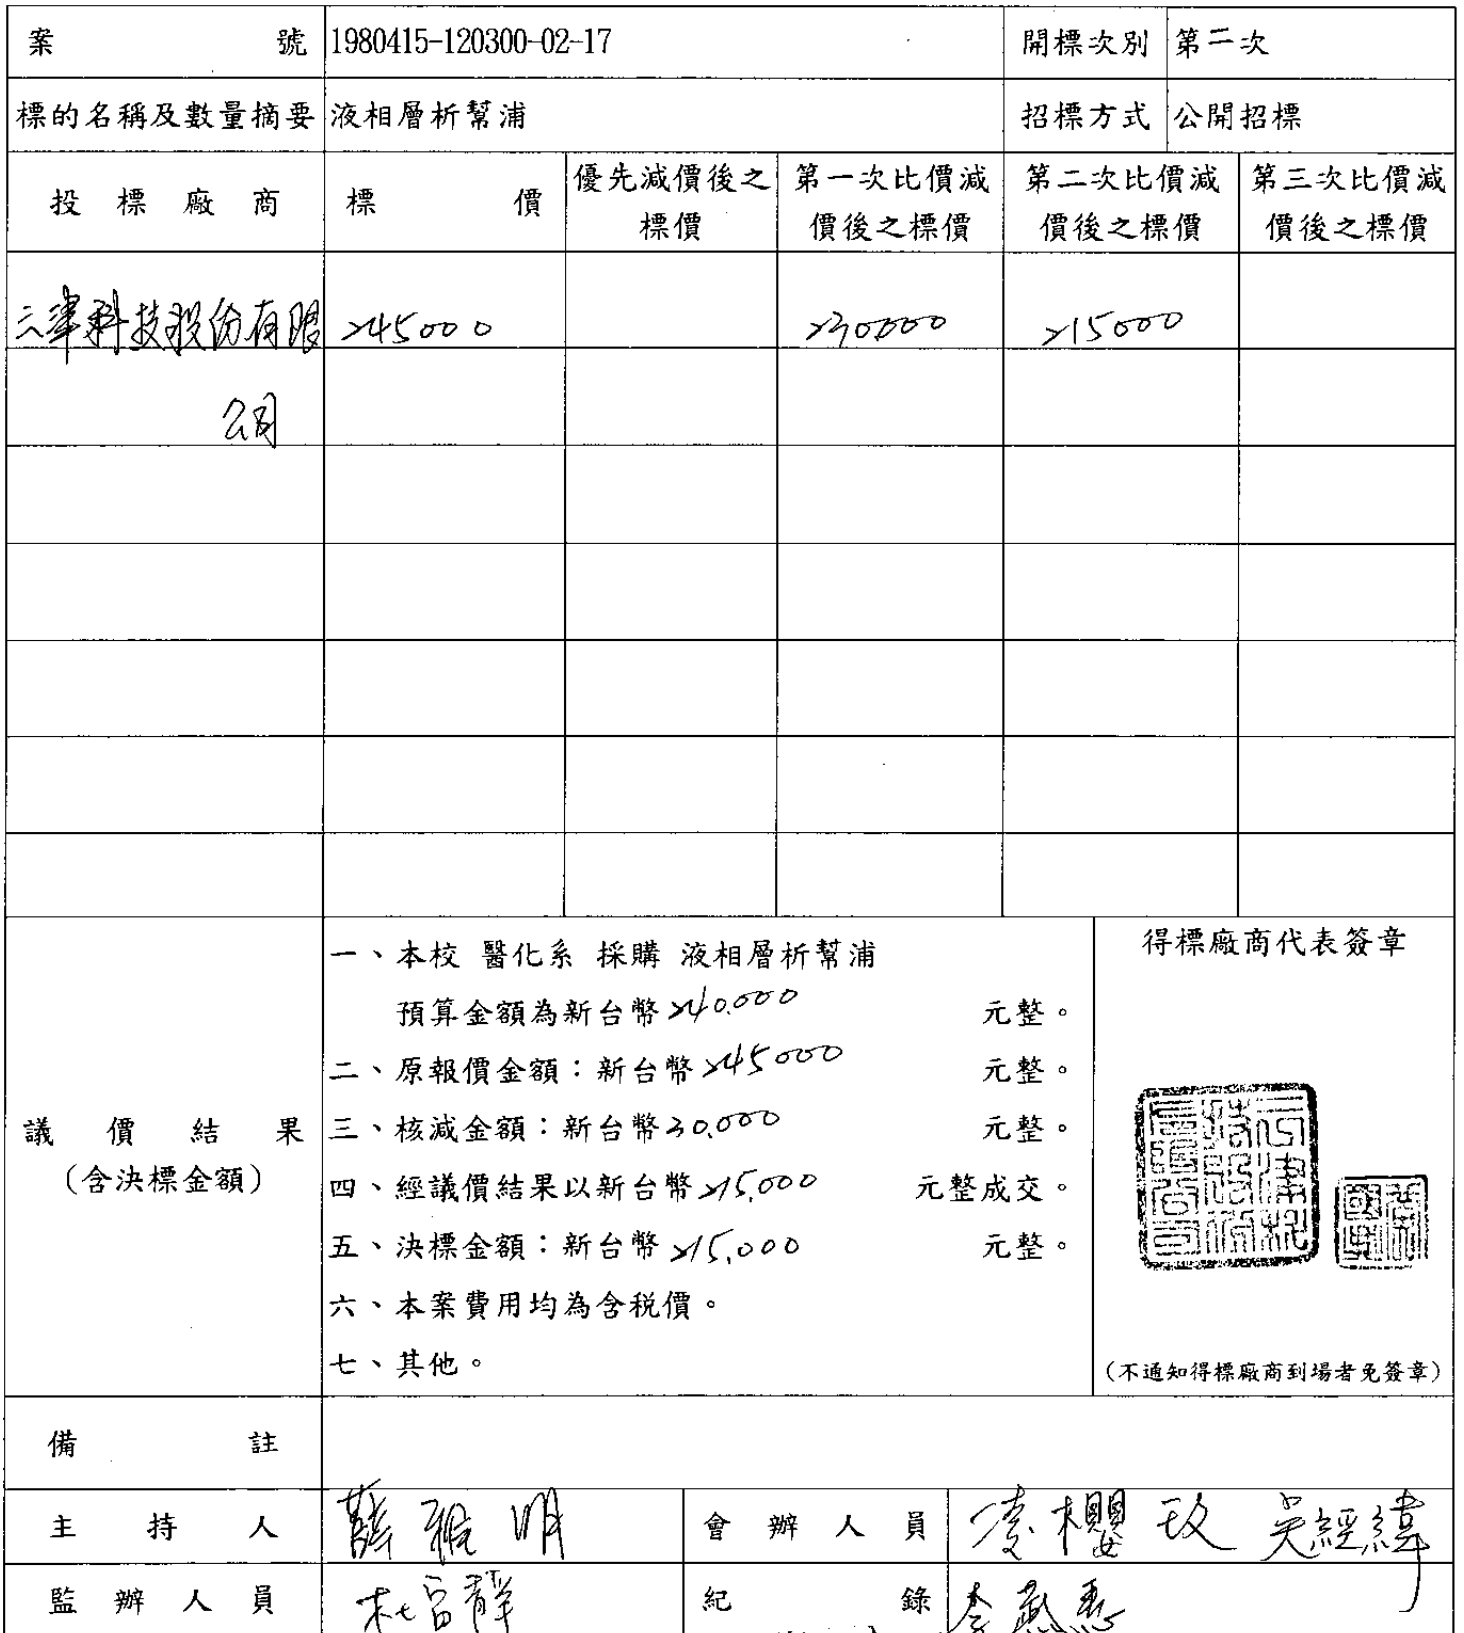 案 號 1980415-120300-02-17 開標次別 第二次
標的名稱及數量摘要 液相層析幫浦 招標方式 公開招標
投標廠商 標價 優先減價後之標價 第一次比價減價後之標價 第二次比價減價後之標價 第三次比價減價後之標價
三津科技股份有限 245000 230000 215000
公司
議價結果
(含決標金額)
一、本校 醫化系 採購 液相層析幫浦
預算金額為新台幣240.000 元整。
二、原報價金額：新台幣245000 元整。
三、核減金額：新台幣30.000 元整。
四、經議價結果以新台幣215,000 元整成交。
五、決標金額：新台幣215,000 元整。
六、本案費用均為含稅價。
七、其他。
得標廠商代表簽章
(不通知得標廠商到場者免簽章)
備註
主持人 會辦人員 吳經緯
監辦人員 紀錄